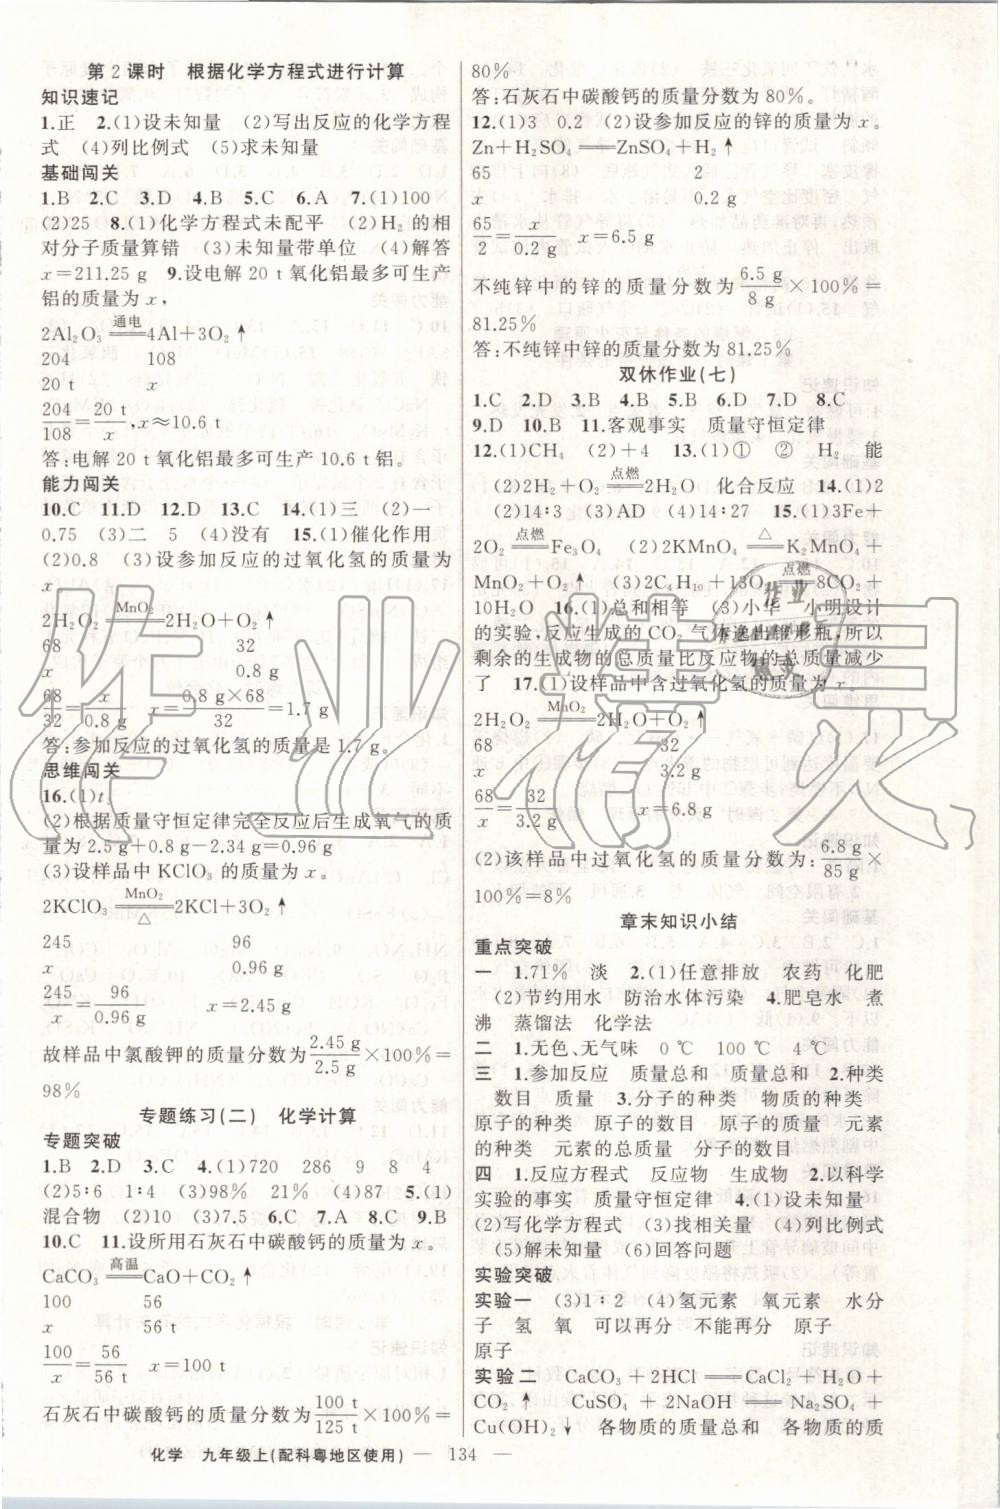 第2课时 根据化学方程式进行计算
知识速记
1.正 2.(1)设未知量 (2)写出反应的化学方程
式 (4)列比例式 (5)求未知量
基础闯关
1.B 2.C 3.D 4.B 5.C 6.A 7.(1)100
(2)25 8.(1)化学方程式未配平 (2)H₂的相
对分子质量算错 (3)未知量带单位 (4)解答
x=211.25 g 9.设电解20 t氧化铝最多可生产
铝的质量为x,
2Al₂O₃ 通电 4Al+3O₂↑
204 108
20 t x
204/108=20 t/x,x≈10.6 t
答:电解20 t氧化铝最多可生产10.6 t铝。
能力闯关
10.C 11.D 12.D 13.C 14.(1)三 (2)一
0.75 (3)二 5 (4)没有 15.(1)催化作用
(2)0.8 (3)设参加反应的过氧化氢的质量为
x
2H₂O₂ MnO₂ 2H₂O+O₂↑
68 32
x 0.8 g
68/32=x/0.8 g x=0.8 g×68/32=1.7 g
答:参加反应的过氧化氢的质量是1.7 g。
思维闯关
16.(1)t₁
(2)根据质量守恒定律完全反应后生成氧气的质
量为2.5 g+0.8 g-2.34 g=0.96 g
(3)设样品中KClO₃的质量为x。
2KClO₃ MnO₂ △ 2KCl+3O₂↑
245 96
x 0.96 g
245/x=96/0.96 g x=2.45 g
故样品中氯酸钾的质量分数为2.45 g/2.5 g×100%=
98%
专题练习(二) 化学计算
专题突破
1.B 2.D 3.C 4.(1)720 286 9 8 4
(2)5∶6 1∶4 (3)98% 21% (4)87 5.(1)
混合物 (2)10 (3)7.5 6.C 7.A 8.C 9.B
10.C 11.设所用石灰石中碳酸钙的质量为x。
CaCO₃ 高温 CaO+CO₂↑
100 56
x 56 t
100/x=56/56 t x=100 t
石灰石中碳酸钙的质量分数为100 t/125 t×100%=
80%
答:石灰石中碳酸钙的质量分数为80%。
12.(1)3 0.2 (2)设参加反应的锌的质量为x。
Zn+H₂SO₄══ZnSO₄+H₂↑
65 2
x 0.2 g
65/2=x/0.2 g x=6.5 g
不纯锌中的锌的质量分数为6.5 g/8 g×100%=
81.25%
答:不纯锌中锌的质量分数为81.25%
双休作业(七)
1.C 2.D 3.B 4.B 5.B 6.D 7.D 8.C
9.D 10.B 11.客观事实 质量守恒定律
12.(1)CH₄ (2)+4 13.(1)① ② H₂ 能
(2)2H₂+O₂ 点燃 2H₂O 化合反应 14.(1)2
(2)14∶3 (3)AD (4)14∶27 15.(1)3Fe+
2O₂ 点燃 Fe₃O₄ (2)2KMnO₄ △ K₂MnO₄+
MnO₂+O₂↑ (3)2C₄H₁₀+13O₂ 点燃 8CO₂+
10H₂O 16.(1)总和相等 (3)小华 小明设计
的实验,反应生成的CO₂气体逸出锥形瓶,所以
剩余的生成物的总质量比反应物的总质量减少
了 17.(1)设样品中含过氧化氢的质量为x
2H₂O₂ MnO₂ 2H₂O+O₂↑
68 32
x 3.2 g
68/x=32/3.2 g x=6.8 g
(2)该样品中过氧化氢的质量分数为:6.8 g/85 g×
100%=8%
章末知识小结
重点突破
一 1.71% 淡 2.(1)任意排放 农药 化肥
(2)节约用水 防治水体污染 4.肥皂水 煮
沸 蒸馏法 化学法
二 1.无色、无气味 0 ℃ 100 ℃ 4 ℃
三 1.参加反应 质量总和 质量总和 2.种类
数目 质量 3.分子的种类 物质的种类
原子的种类 原子的数目 原子的质量 元素
的种类 元素的总质量 分子的数目
四 1.反应方程式 反应物 生成物 2.以科学
实验的事实 质量守恒定律 4.(1)设未知量
(2)写化学方程式 (3)找相关量 (4)列比例式
(5)解未知量 (6)回答问题
实验突破
实验一 (3)1∶2 (4)氢元素 氧元素 水分
子 氢 氧 可以再分 不能再分 原子
原子
实验二 CaCO₃+2HCl══CaCl₂+H₂O+
CO₂↑ CuSO₄+2NaOH══Na₂SO₄+
Cu(OH)₂↓ 各物质的质量总和 各物质的质
化学 九年级上(配科粤地区使用) — 134 —
作业精灵